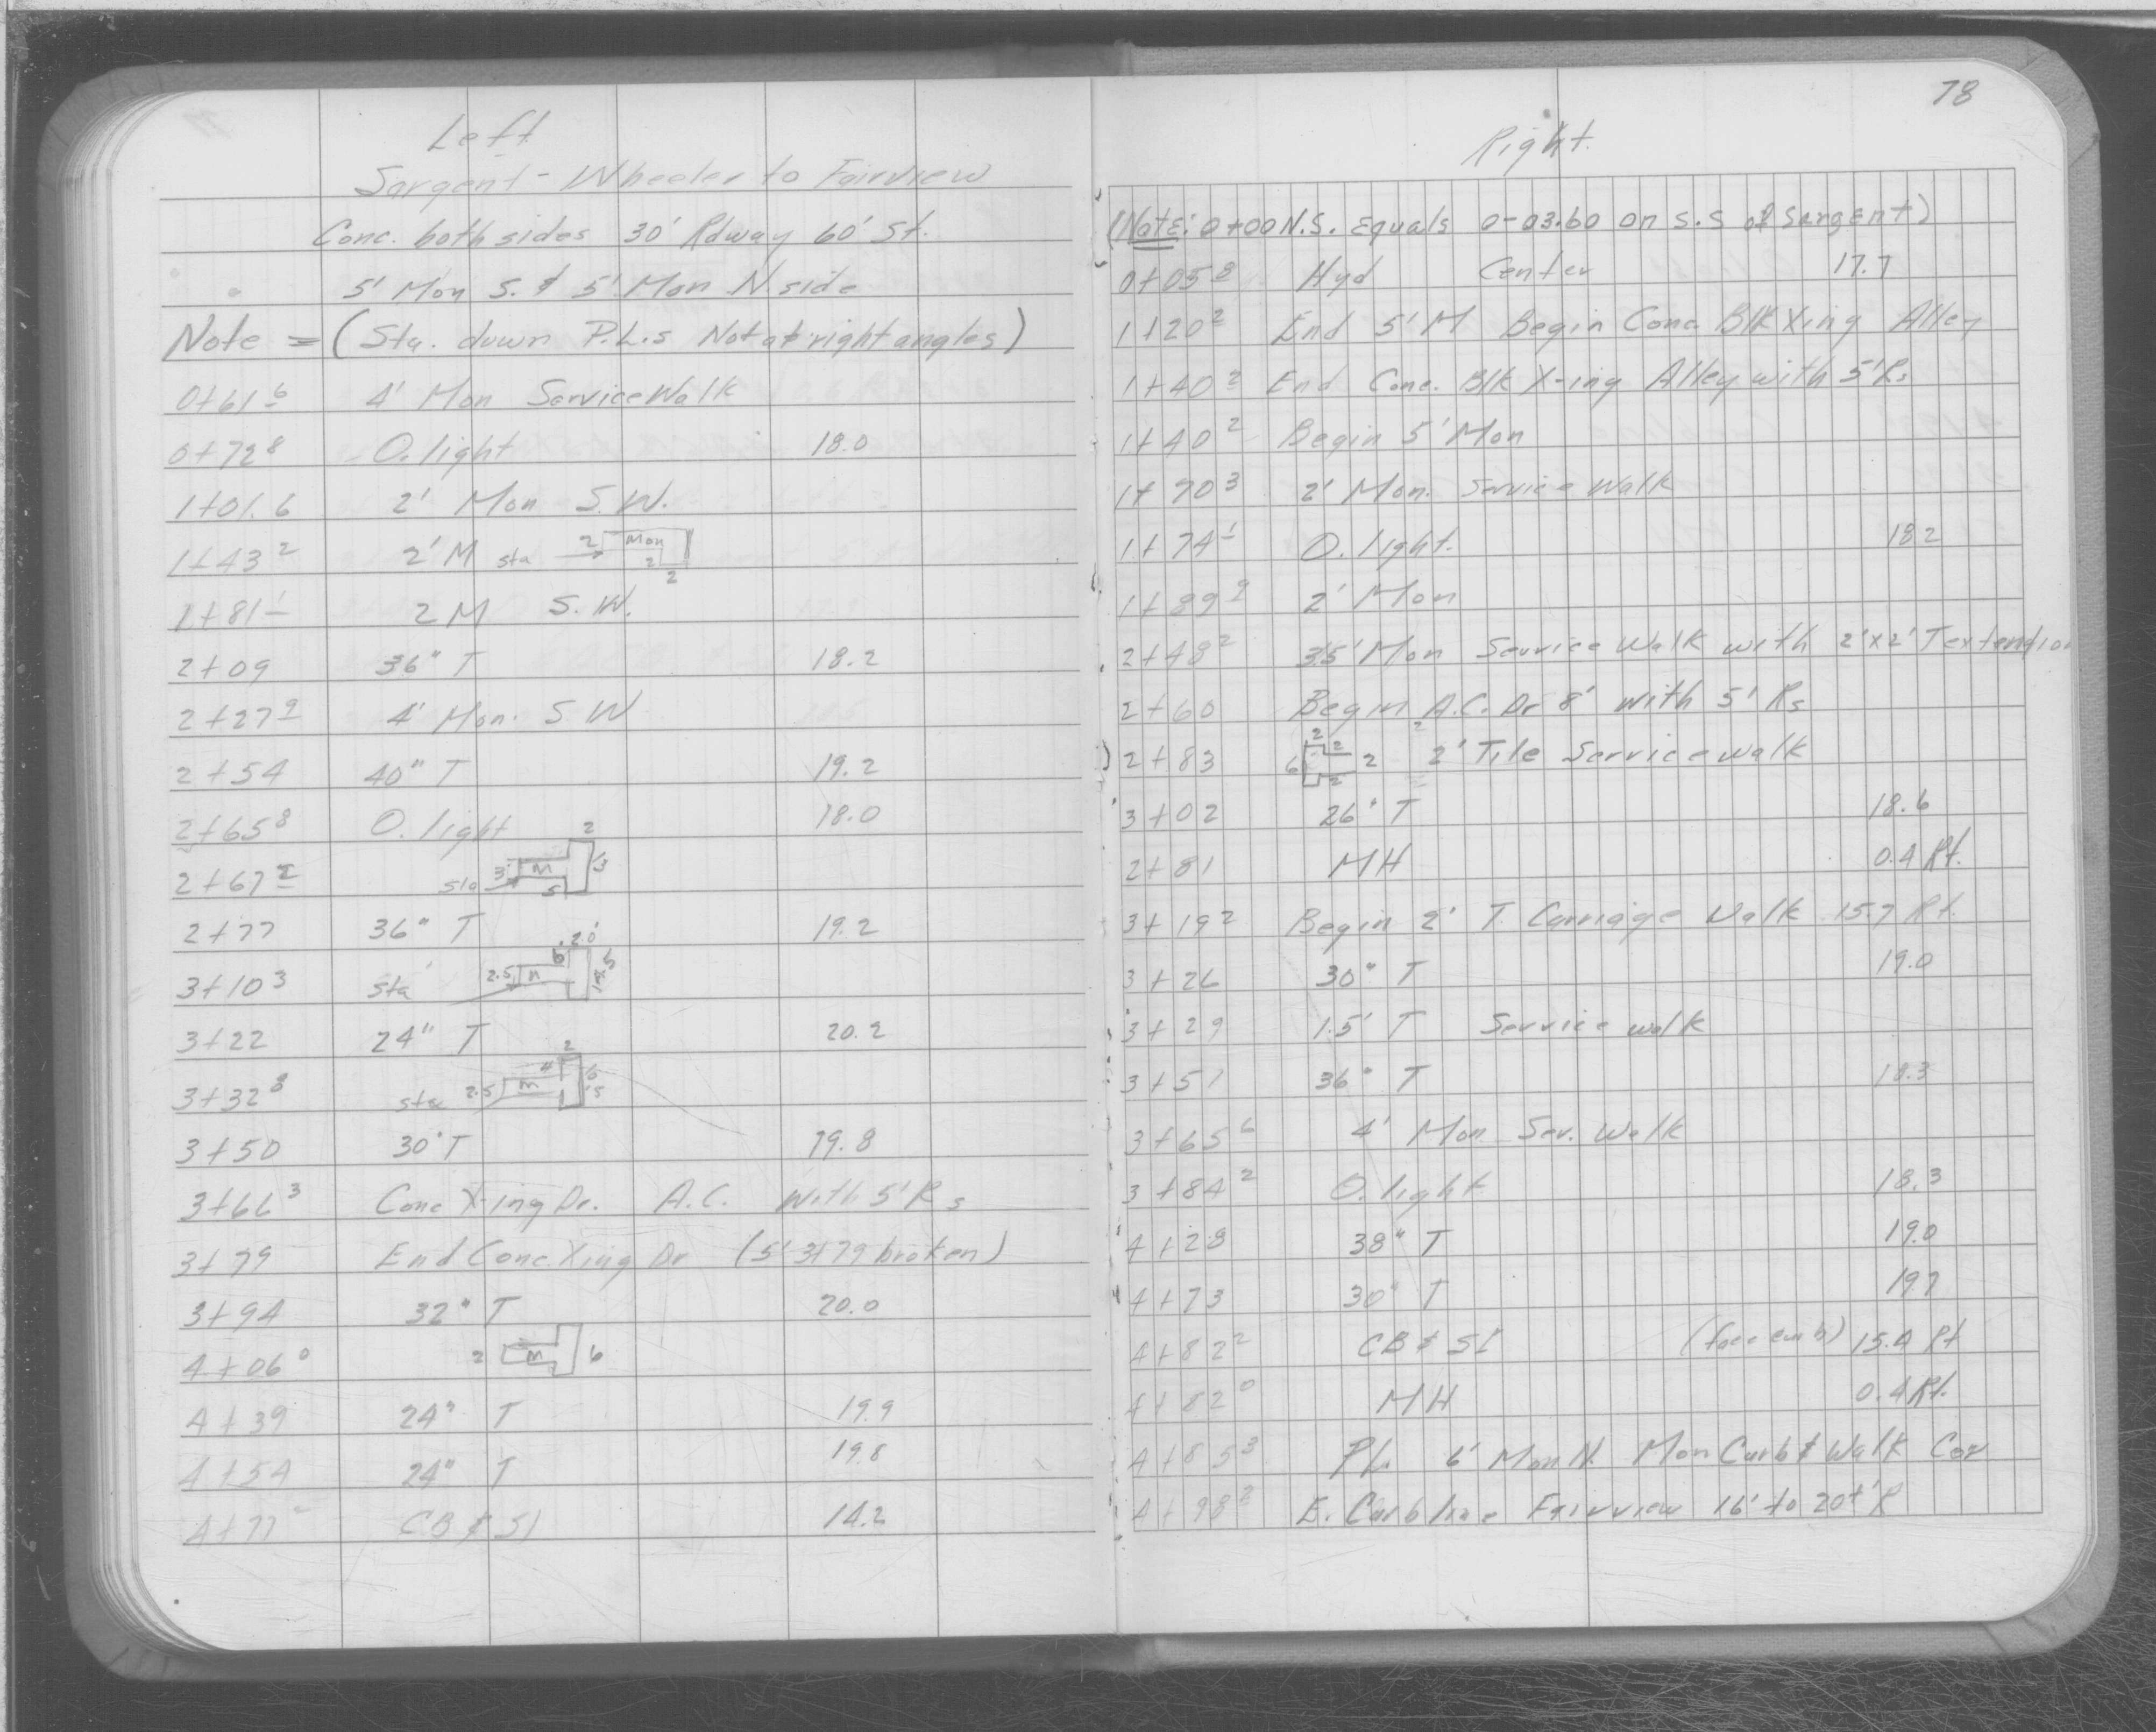 Left
Sargent - Wheeler to Fairview
Conc. both sides 30' Rdway 60' St.
5' Mon S. & 5' Mon N side
Note = (Sta. down P.L.s Not at right angles)
0+61 6 4' Mon Service Walk
0+72 8 O. light 18.0
1+01.6 2' Mon S.W.
1+43 2 2' M sta 2 Mon 2 2
1+81 1 2 M S.W.
2+09 36" T 18.2
2+27 9 4' Mon. S W
2+54 40" T 19.2
2+65 8 O. light 18.0
2+67 2 sta 3 M 5 2 13
2+77 36" T 19.2
3+10 3 sta 2.5 M 6 2.0
3+22 24" T 20.2
3+32 8 sta 2.5 M 4 2
3+50 30" T 19.8
3+66 3 Conc X-ing Dr. A.C. with 5' Rs
3+79 End Conc Xing Dr (5' 3+79 broken)
3+94 32" T 20.0
4+06 0 2 M 6
4+39 24" T 19.9
4+54 24" T 19.8
4+77 CB & SI 14.2
78
Right.
(Note: 0+00 N.S. Equals 0-03.60 on S.S of Sargent)
0+05 8 Hyd Center 17.7
1+20 2 End 5' M Begin Conc. Blk Xing Alley
1+40 2 End Conc. Blk X-ing Alley with 5' Rs
1+40 2 Begin 5' Mon
1+70 3 2' Mon. Service Walk
1+74 1 O. light. 18.2
1+89 9 2' Mon
2+48 2 3.5' Mon Service Walk with 2'x2' T extention
2+60 Begin A.C. Dr 8' with 5' Rs
2+83 6 2 2 2 2 2' Tile Service walk
3+02 26" T 18.6
2+81 MH 0.4 Rt.
3+19 2 Begin 2' T. Carriage Walk 15.7 Rt.
3+26 30" T 19.0
3+29 1.5' T Service walk
3+51 36" T 18.3
3+65 6 4' Mon Ser. Walk
3+84 2 O. light 18.3
4+28 38" T 19.0
4+73 30" T 19.7
4+82 2 CB & SI (face curb) 15.4 Rt
4+82 0 MH 0.4 Rt.
4+85 3 PL. 6' Mon N. Mon Curb & Walk Cor
4+98 2 E. Curb line Fairview 16' to 20+' R